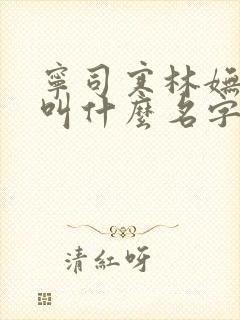 寧司寒林嫵
叫什麼名字
清紅呀